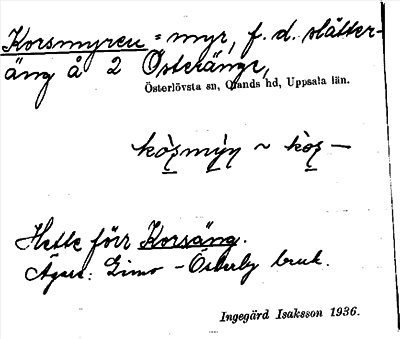 Korsmyren = myr, f. d. slåtter-
äng å 2 Österänge,
Österlövsta sn, Olands hd, Uppsala län.
Hette förr Korsäng.
Ägare: Gimo - Österby bruk.
Ingegärd Isaksson 1936.